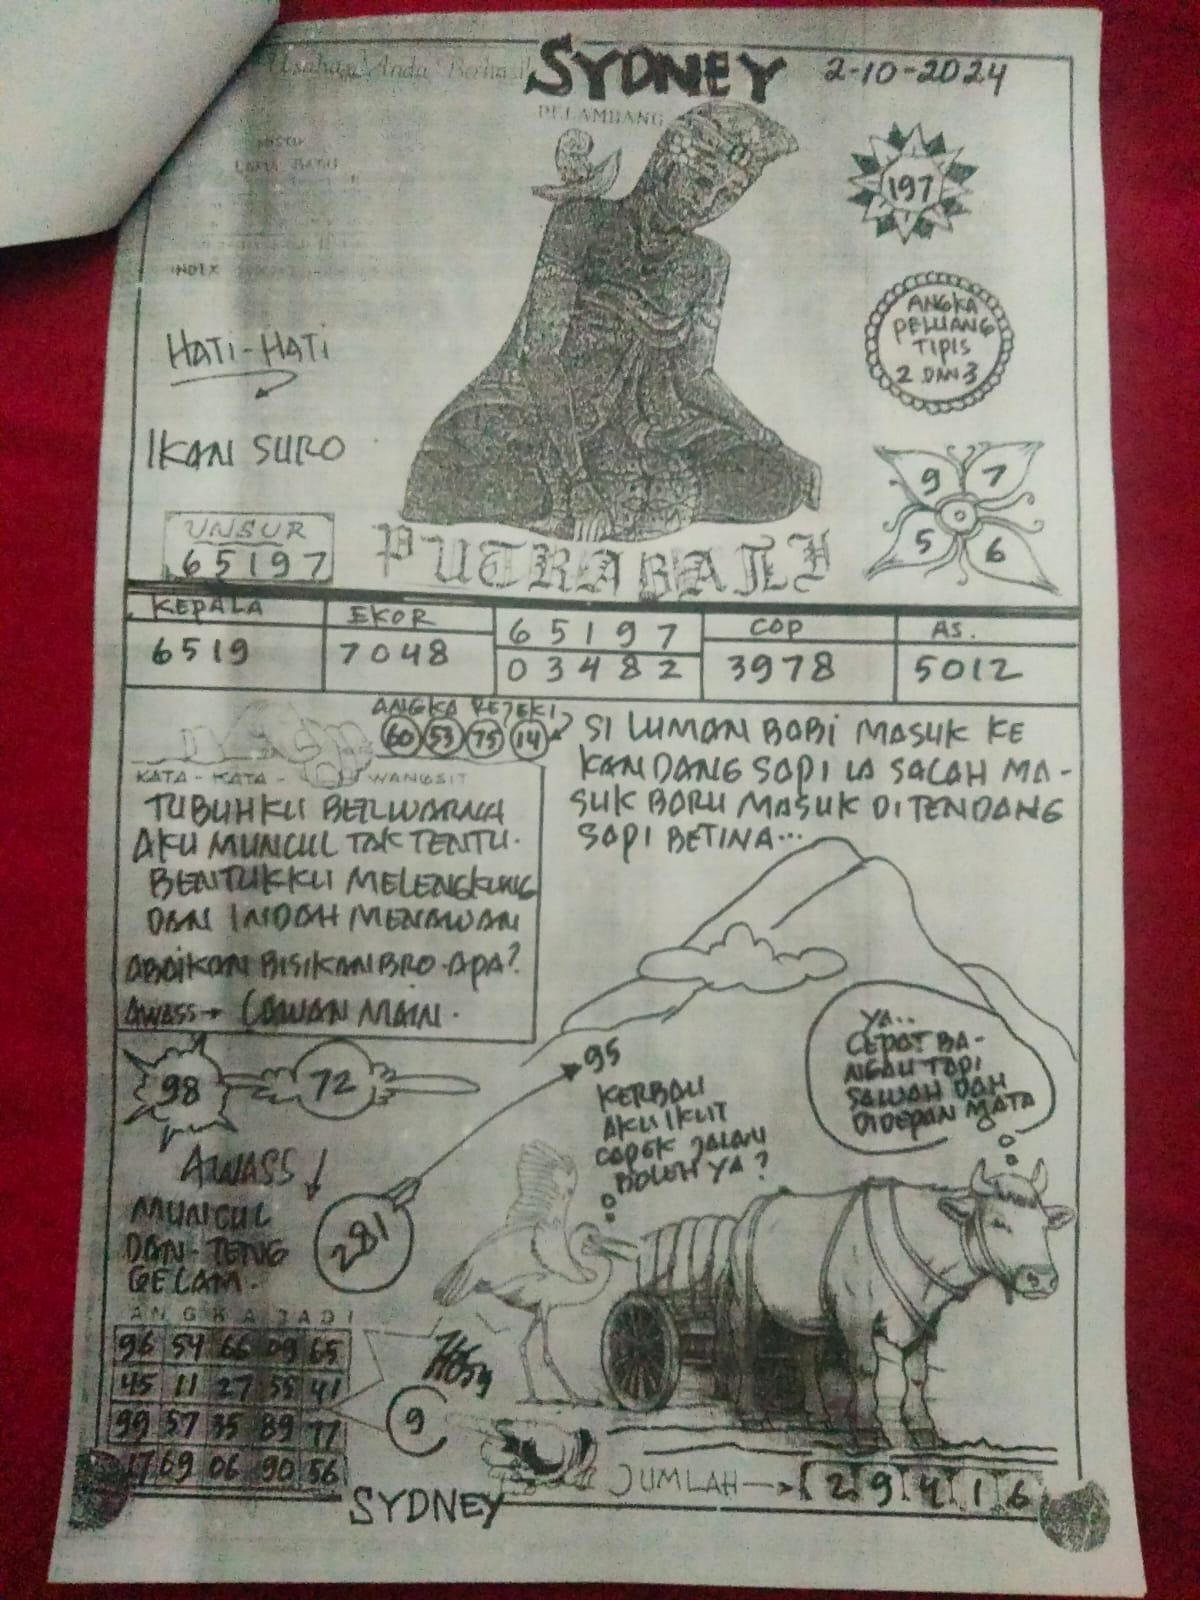 Usaha Anda Berhasil
SYDNEY
2-10-2024
PELAMBANG
197
INDEX
ANGKA
PELUANG
TIPIS
2 DAN 3
HATI-HATI
IKAN SURO
9 7
5 6
UNSUR
65197
PUTRA BALI
KEPALA
6519
EKOR
7048
65197
03482
COP
3978
AS.
5012
ANGKA REJEKI
60 53 75 14
SI LUMAN BABI MASUK KE
KANDANG SAPI IA SALAH MA-
SUK BARU MASUK DITENDANG
SAPI BETINA...
KATA-KATA-WANGSIT
TUBUHKU BERWARNA
AKU MUNCUL TAK TENTU.
BENTUKKU MELENGKUNG
DAN INDAH MENAWAN
ABAIKAN BISIKAN BRO-APA?
AWASS→ LAWAN MAIN.
98 72
95
KERBAU
AKU IKUT
CAPEK JALAN
BOLEH YA?
YA..
CEPAT BA-
NGAU TAPI
SAWAH DAH
DIDEPAN MATA
AWASS
MUNCUL
DAN-TENG
GELAM.
281
ANGKA JADI
96 54 66 09 65
45 11 27 55 41
99 57 35 89 77
17 69 06 90 56
9
JUMLAH→ 2 9 4 1 6
SYDNEY